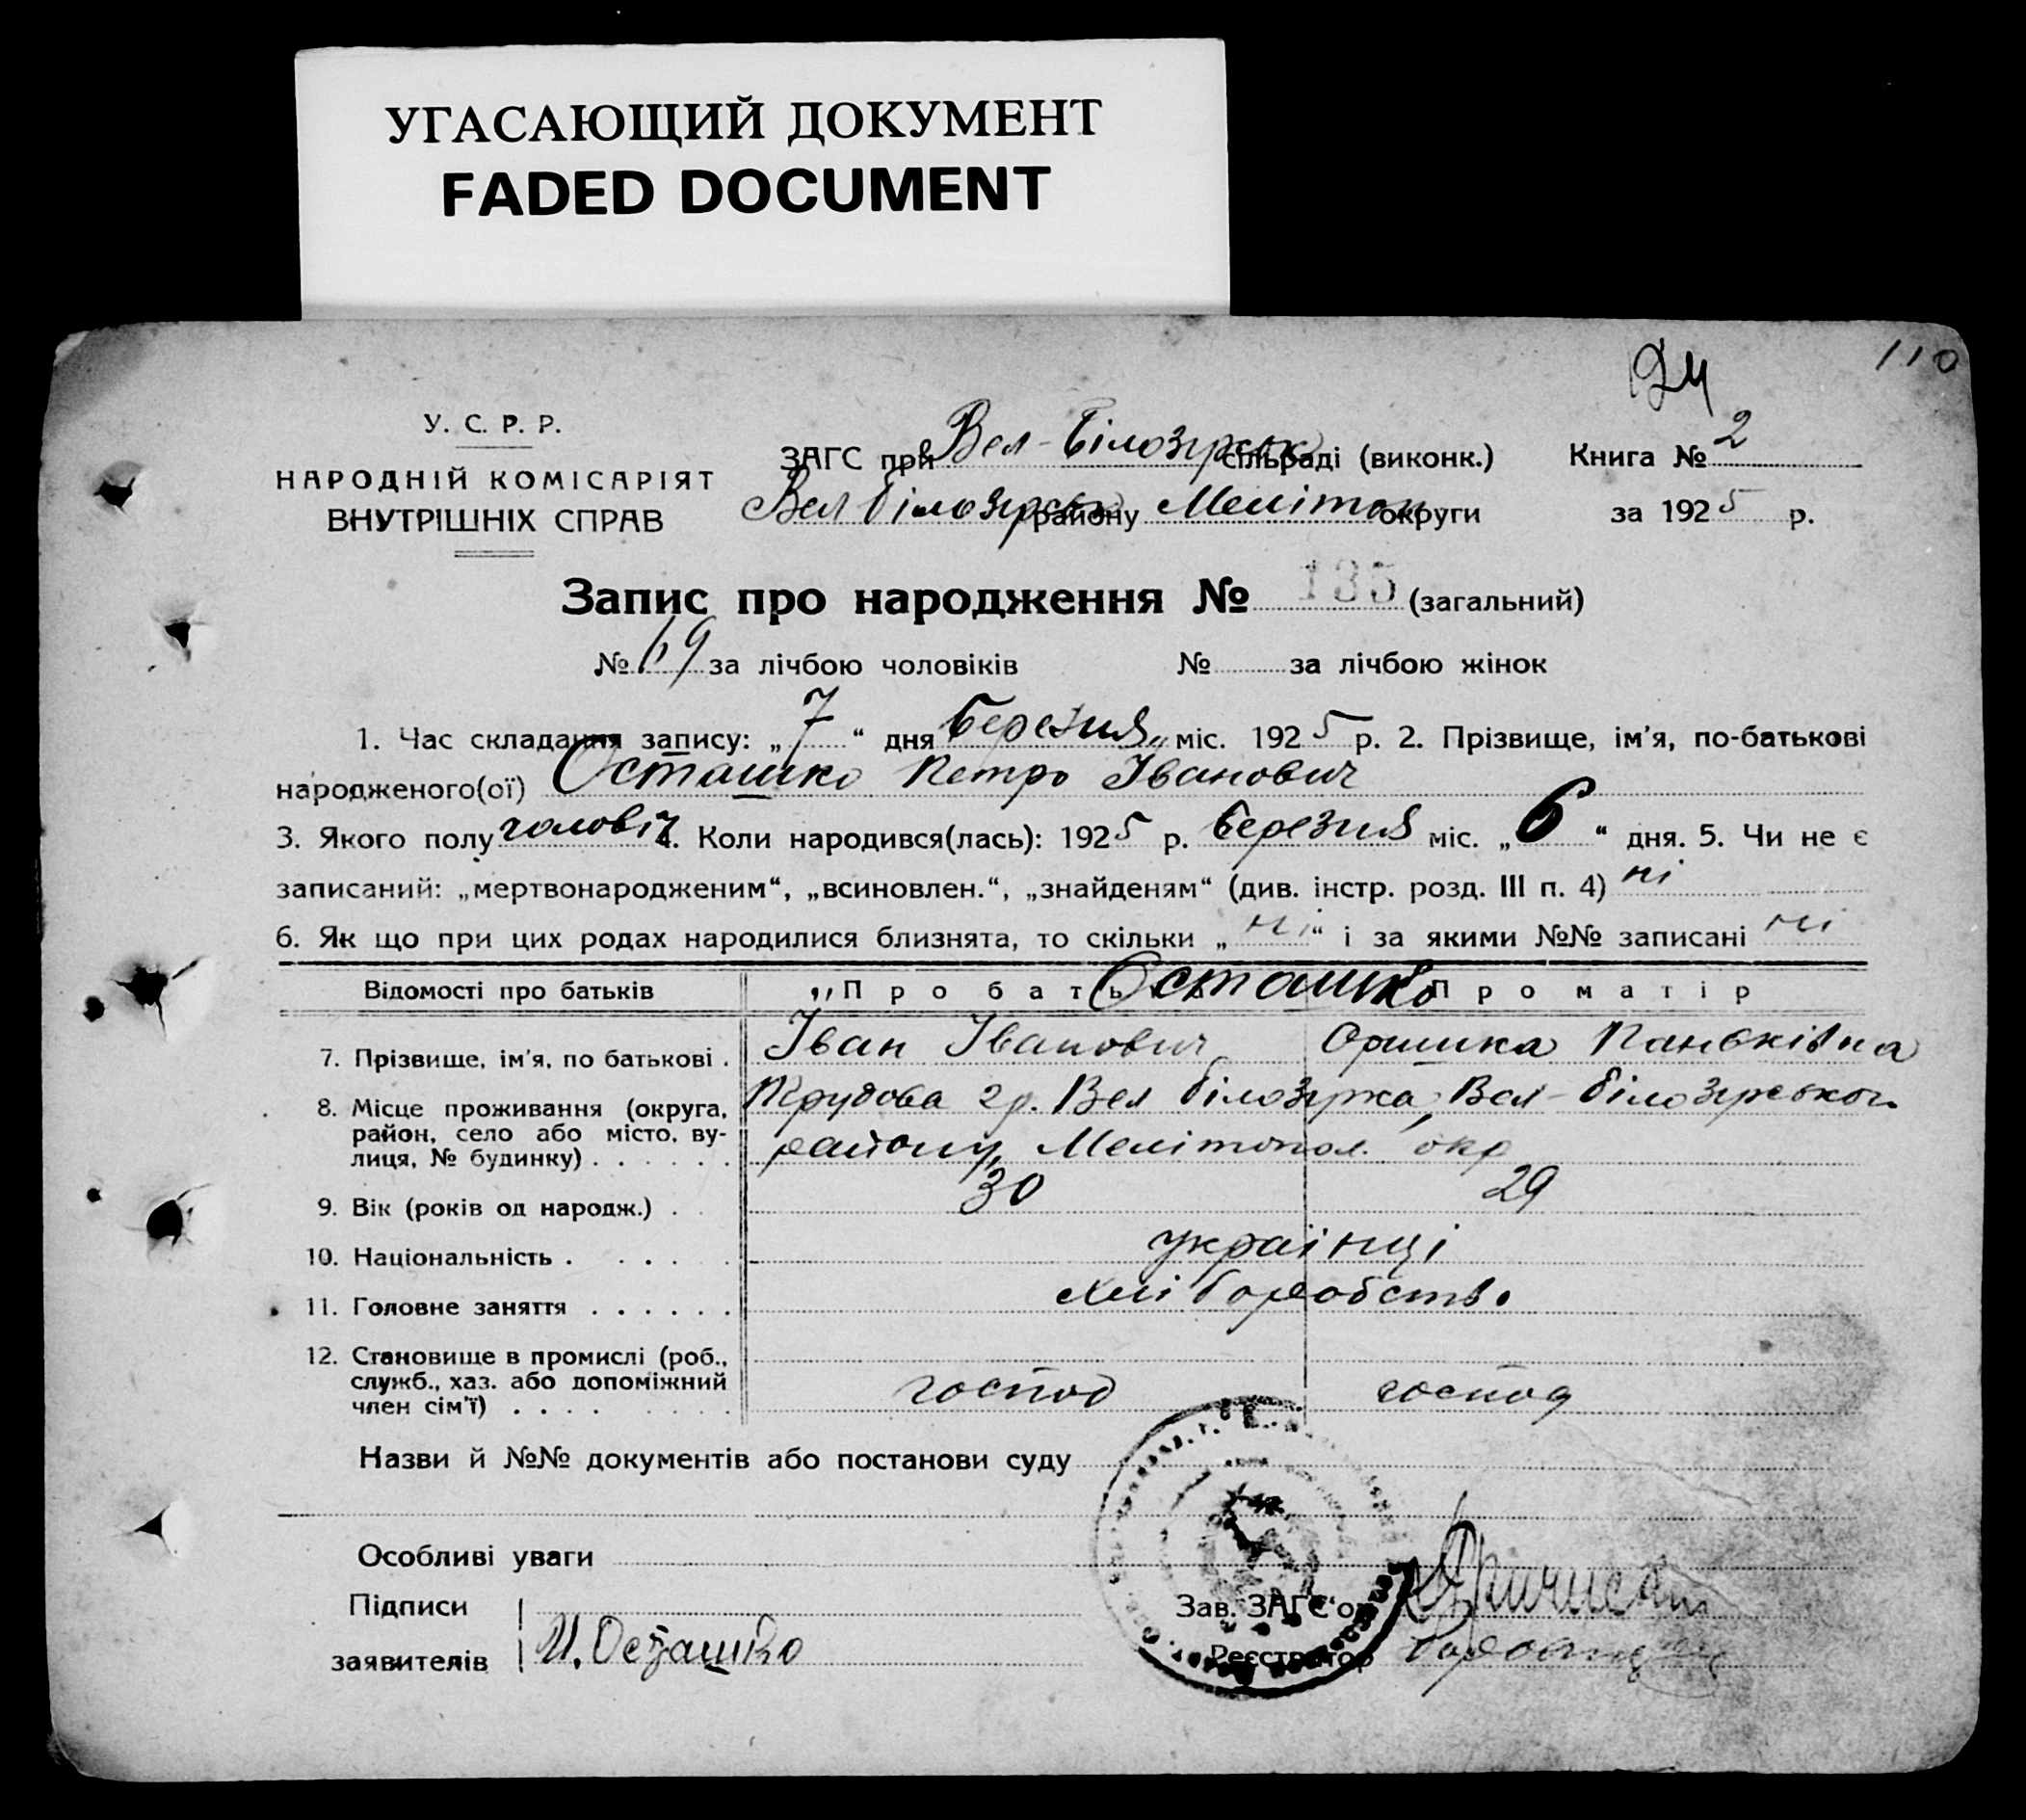 УГАСАЮЩИЙ ДОКУМЕНТ
FADED DOCUMENT
110
У. С. Р. Р.
НАРОДНІЙ КОМІСАРІЯТ
ВНУТРІШНІХ СПРАВ
ЗАГС при Вел-Білозірськ сільраді (виконк.) Книга № 2
Вел Білозірськ району Мелітоп округи за 1925 р.
Запис про народження № 135 (загальний)
№ 69 за лічбою чоловіків № за лічбою жінок
1. Час складання запису: „7“ дня березня міс. 1925 р. 2. Прізвище, ім'я, по-батькові
народженого(ої) Осташко Петро Іванович
3. Якого полу чоловіч 4. Коли народився(лась): 1925 р. березня міс. „6“ дня. 5. Чи не є
записаний: „мертвонародженим“, „всиновлен.“, „знайденям“ (див. інстр. розд. III п. 4) ні
6. Як що при цих родах народилися близнята, то скільки „ні“ і за якими №№ записані ні
Відомості про батьків Про батька Осташко Про матір
7. Прізвище, ім'я, по батькові . Іван Іванович Оришка Паньківна
8. Місце проживання (округа, район, село або місто, вулиця, № будинку) . . . . . . Трудова гр. Вел Білозірка, Вел-Білозірськог.
району, Мелітопол. окр
9. Вік (років од народж.) . . 30 29
10. Національність . . . . . українці
11. Головне заняття . . . . . . хліборобств.
12. Становище в промислі (роб., служб., хаз. або допоміжний член сім'ї) . . . . господ господ
Назви й №№ документів або постанови суду
Особливі уваги
Підписи
заявителів И. Осташко
Зав. ЗАГС'ом
Реєстратор